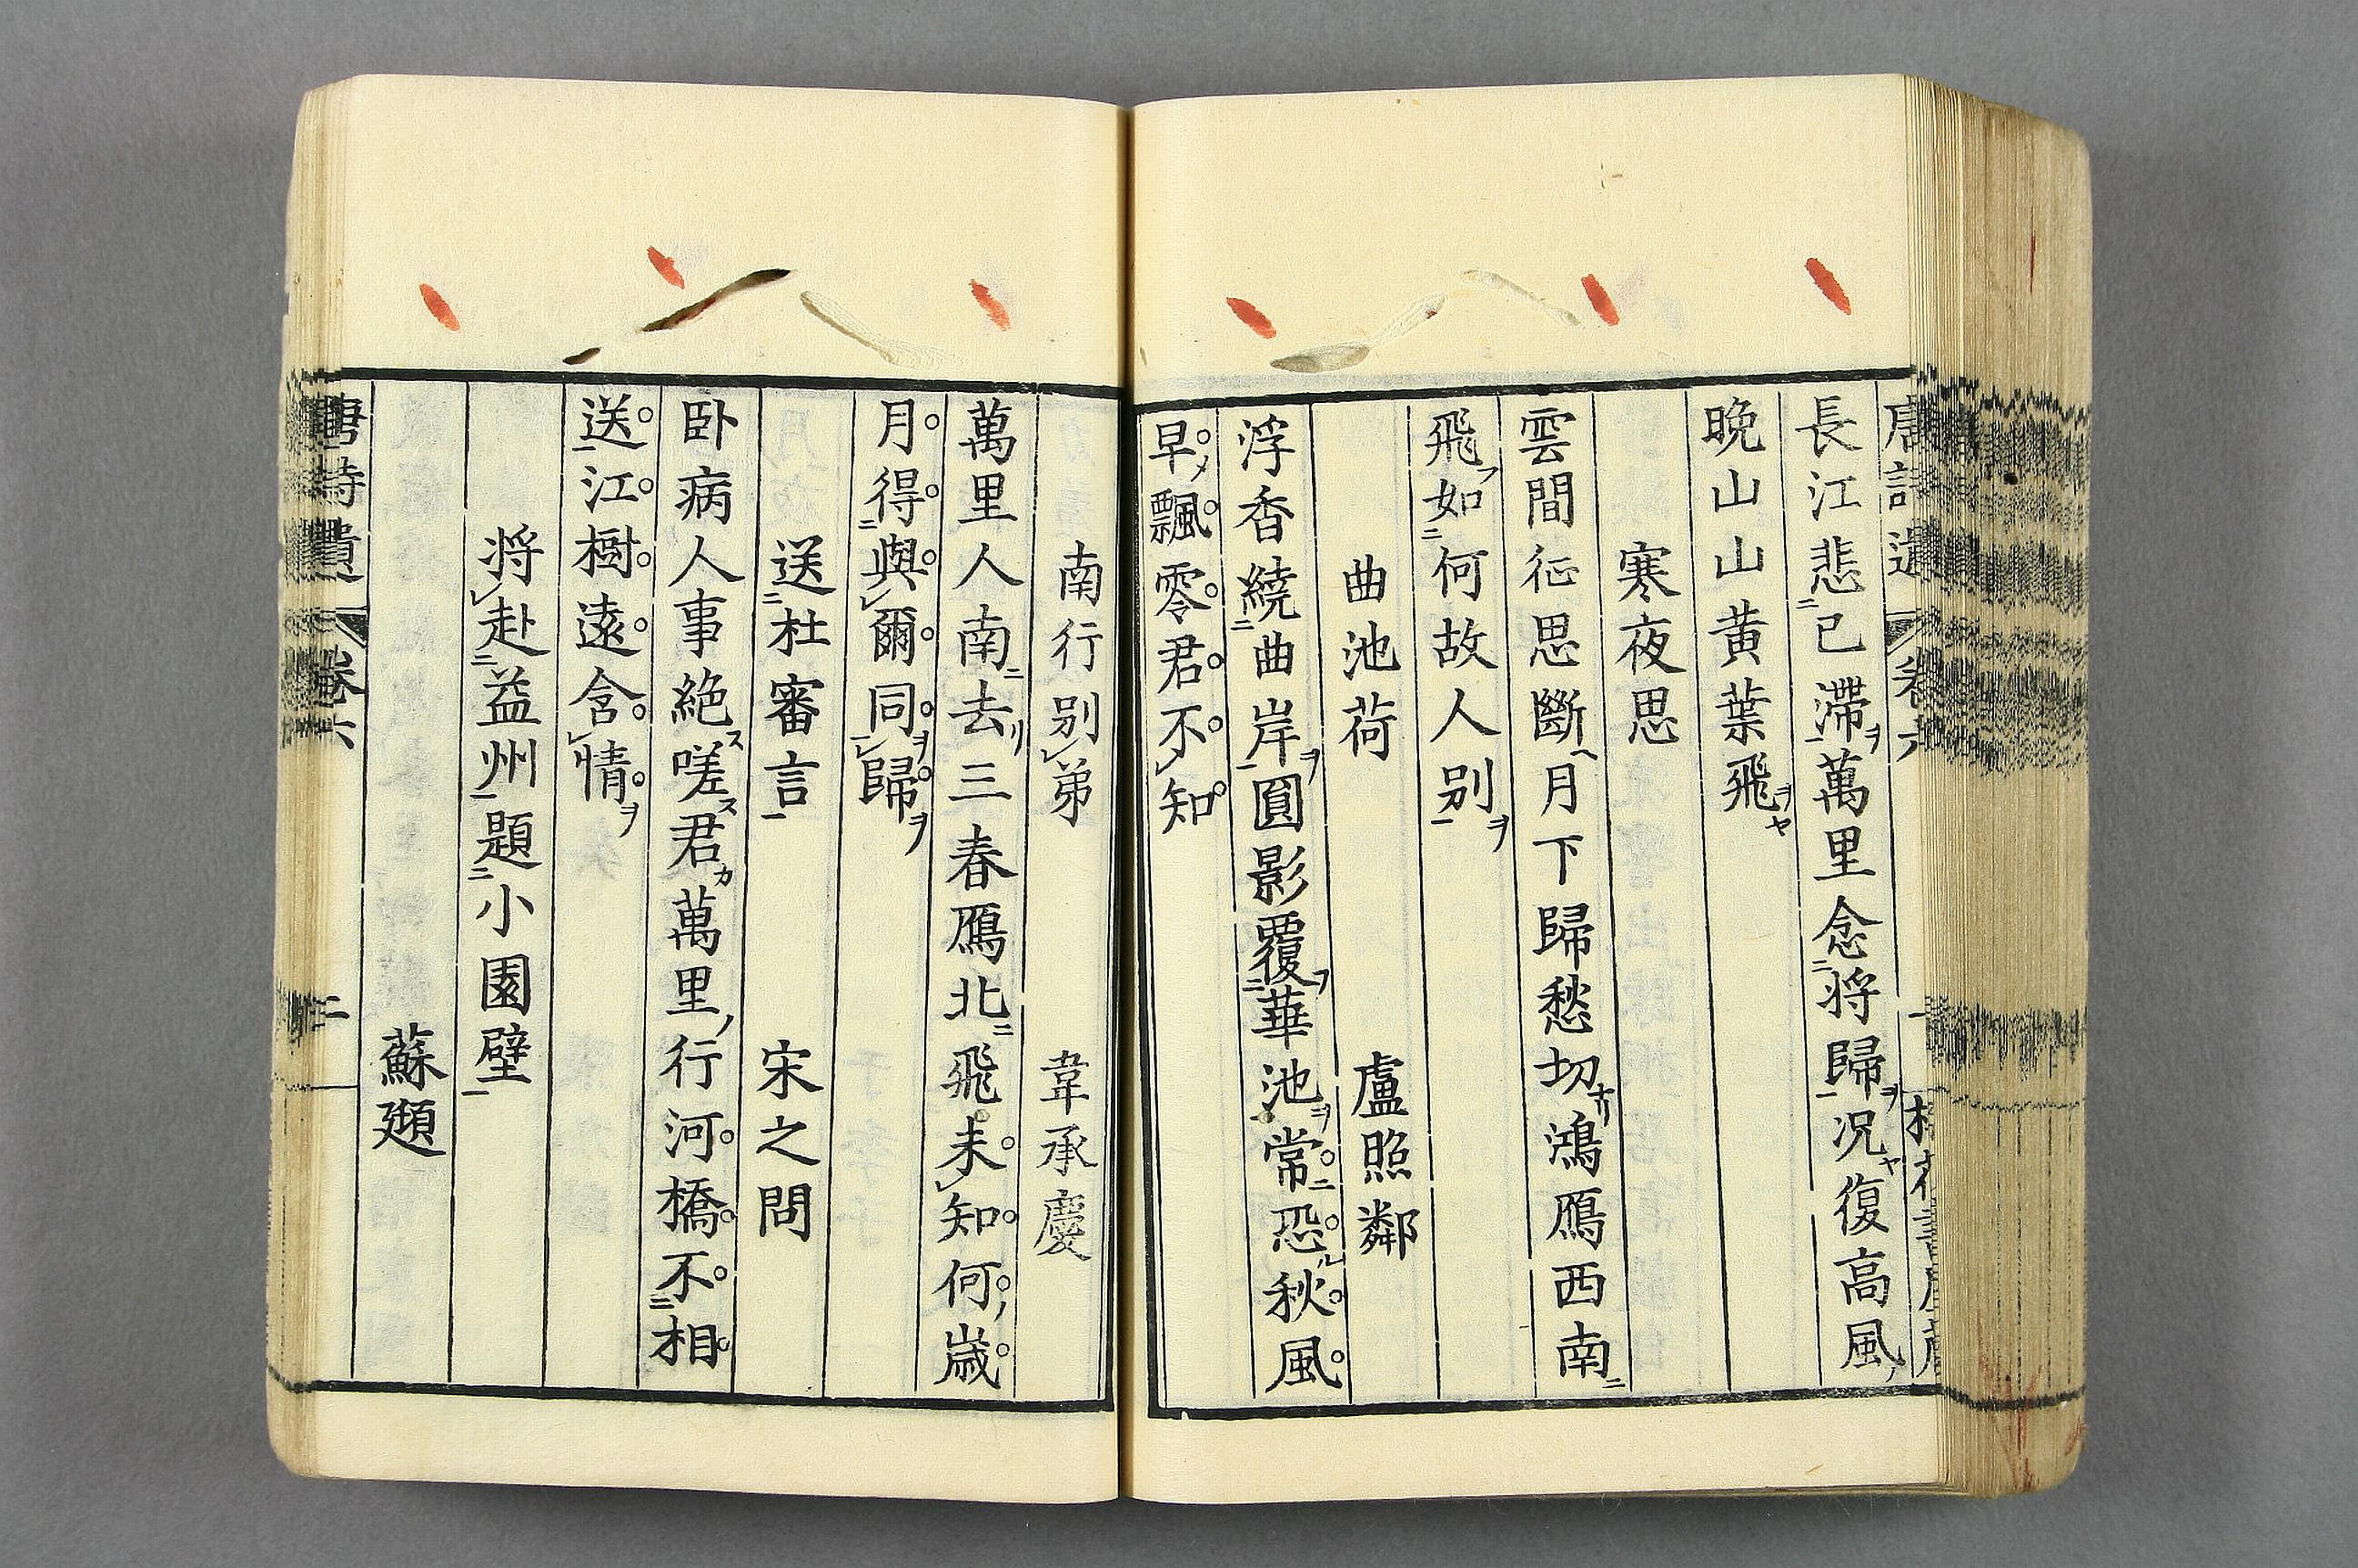 長江悲已滯萬里念将歸况復高風
晩山山黄葉飛
寒夜思
雲間征思斷月下歸愁切鴻鴈西南
飛如何故人别
曲池荷 盧照鄰
浮香繞曲岸圓影覆華池常恐秋風
早飄零君不知
南行别弟 韋承慶
萬里人南去三春鴈北飛未知何歳
月得與爾同歸
送杜審言 宋之問
卧病人事絶嗟君萬里行河橋不相
送江樹遠含情
将赴益州題小園壁
蘇頲
卷六
二